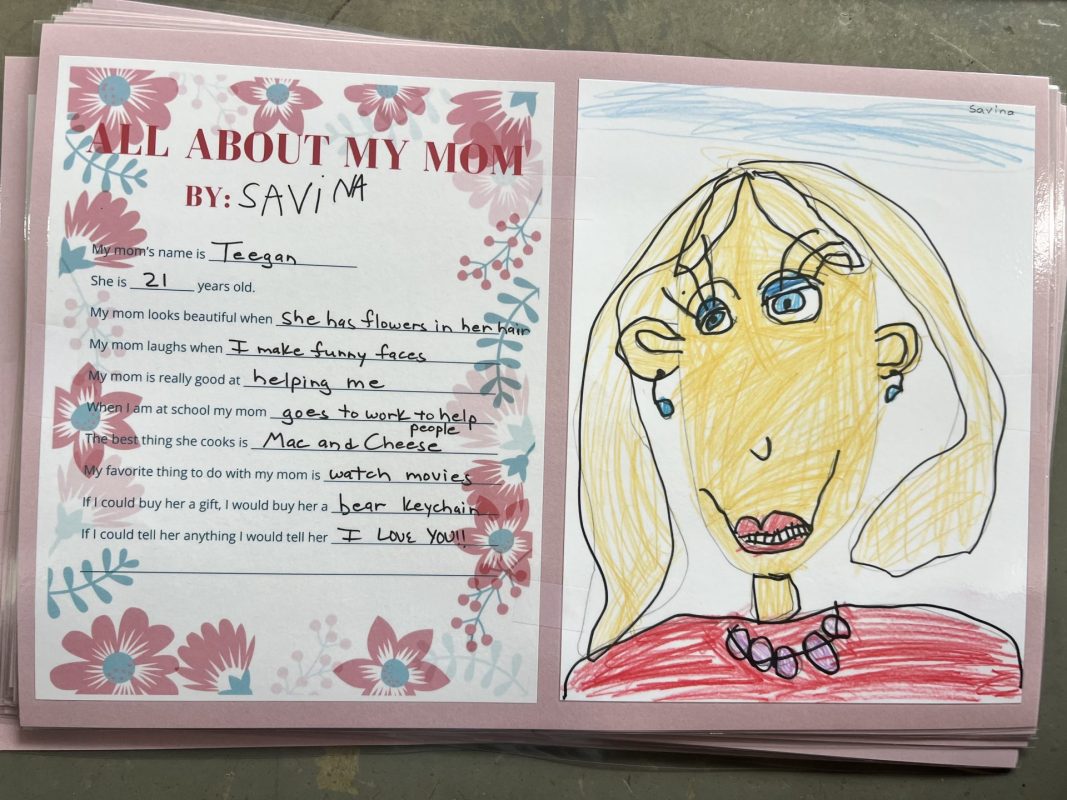 ALL ABOUT MY MOM
BY: SAViNA
My mom's name is Teegan
She is 21 years old.
My mom looks beautiful when she has flowers in her hair
My mom laughs when I make funny faces
My mom is really good at helping me
When I am at school my mom goes to work to help people
The best thing she cooks is Mac and Cheese
My favorite thing to do with my mom is watch movies
If I could buy her a gift, I would buy her a bear keychain
If I could tell her anything I would tell her I LOVE YOU!!
Savina